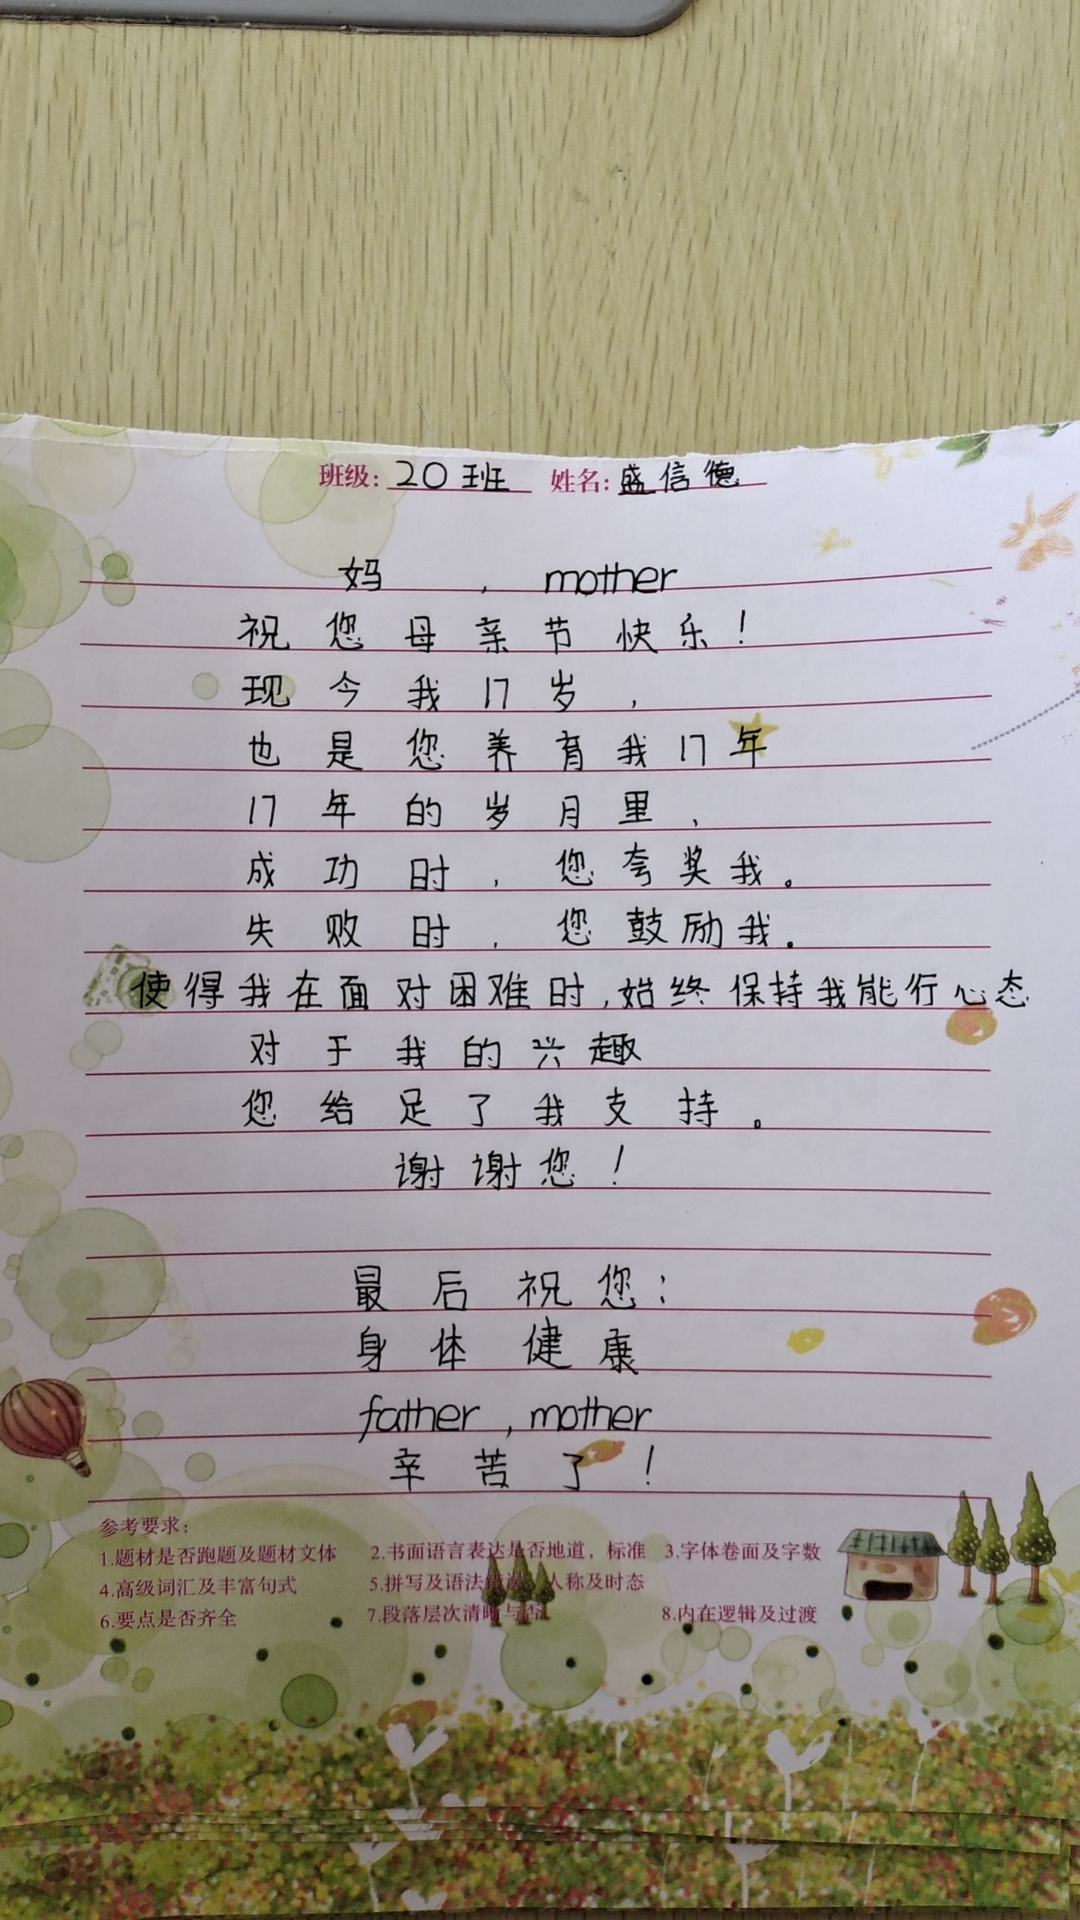 班级: 20班 姓名: 盛信德
妈 , mother
祝您母亲节快乐!
现今我17岁,
也是您养育我17年
17年的岁月里,
成功时,您夸奖我。
失败时,您鼓励我。
使得我在面对困难时,始终保持我能行心态
对于我的兴趣
您给足了我支持。
谢谢您!
最后祝您:
身体健康
father, mother
辛苦了!
参考要求:
1.题材是否跑题及题材文体 2.书面语言表达是否地道,标准 3.字体卷面及字数
4.高级词汇及丰富句式 5.拼写及语法错误,人称及时态
6.要点是否齐全 7.段落层次清晰与否 8.内在逻辑及过渡